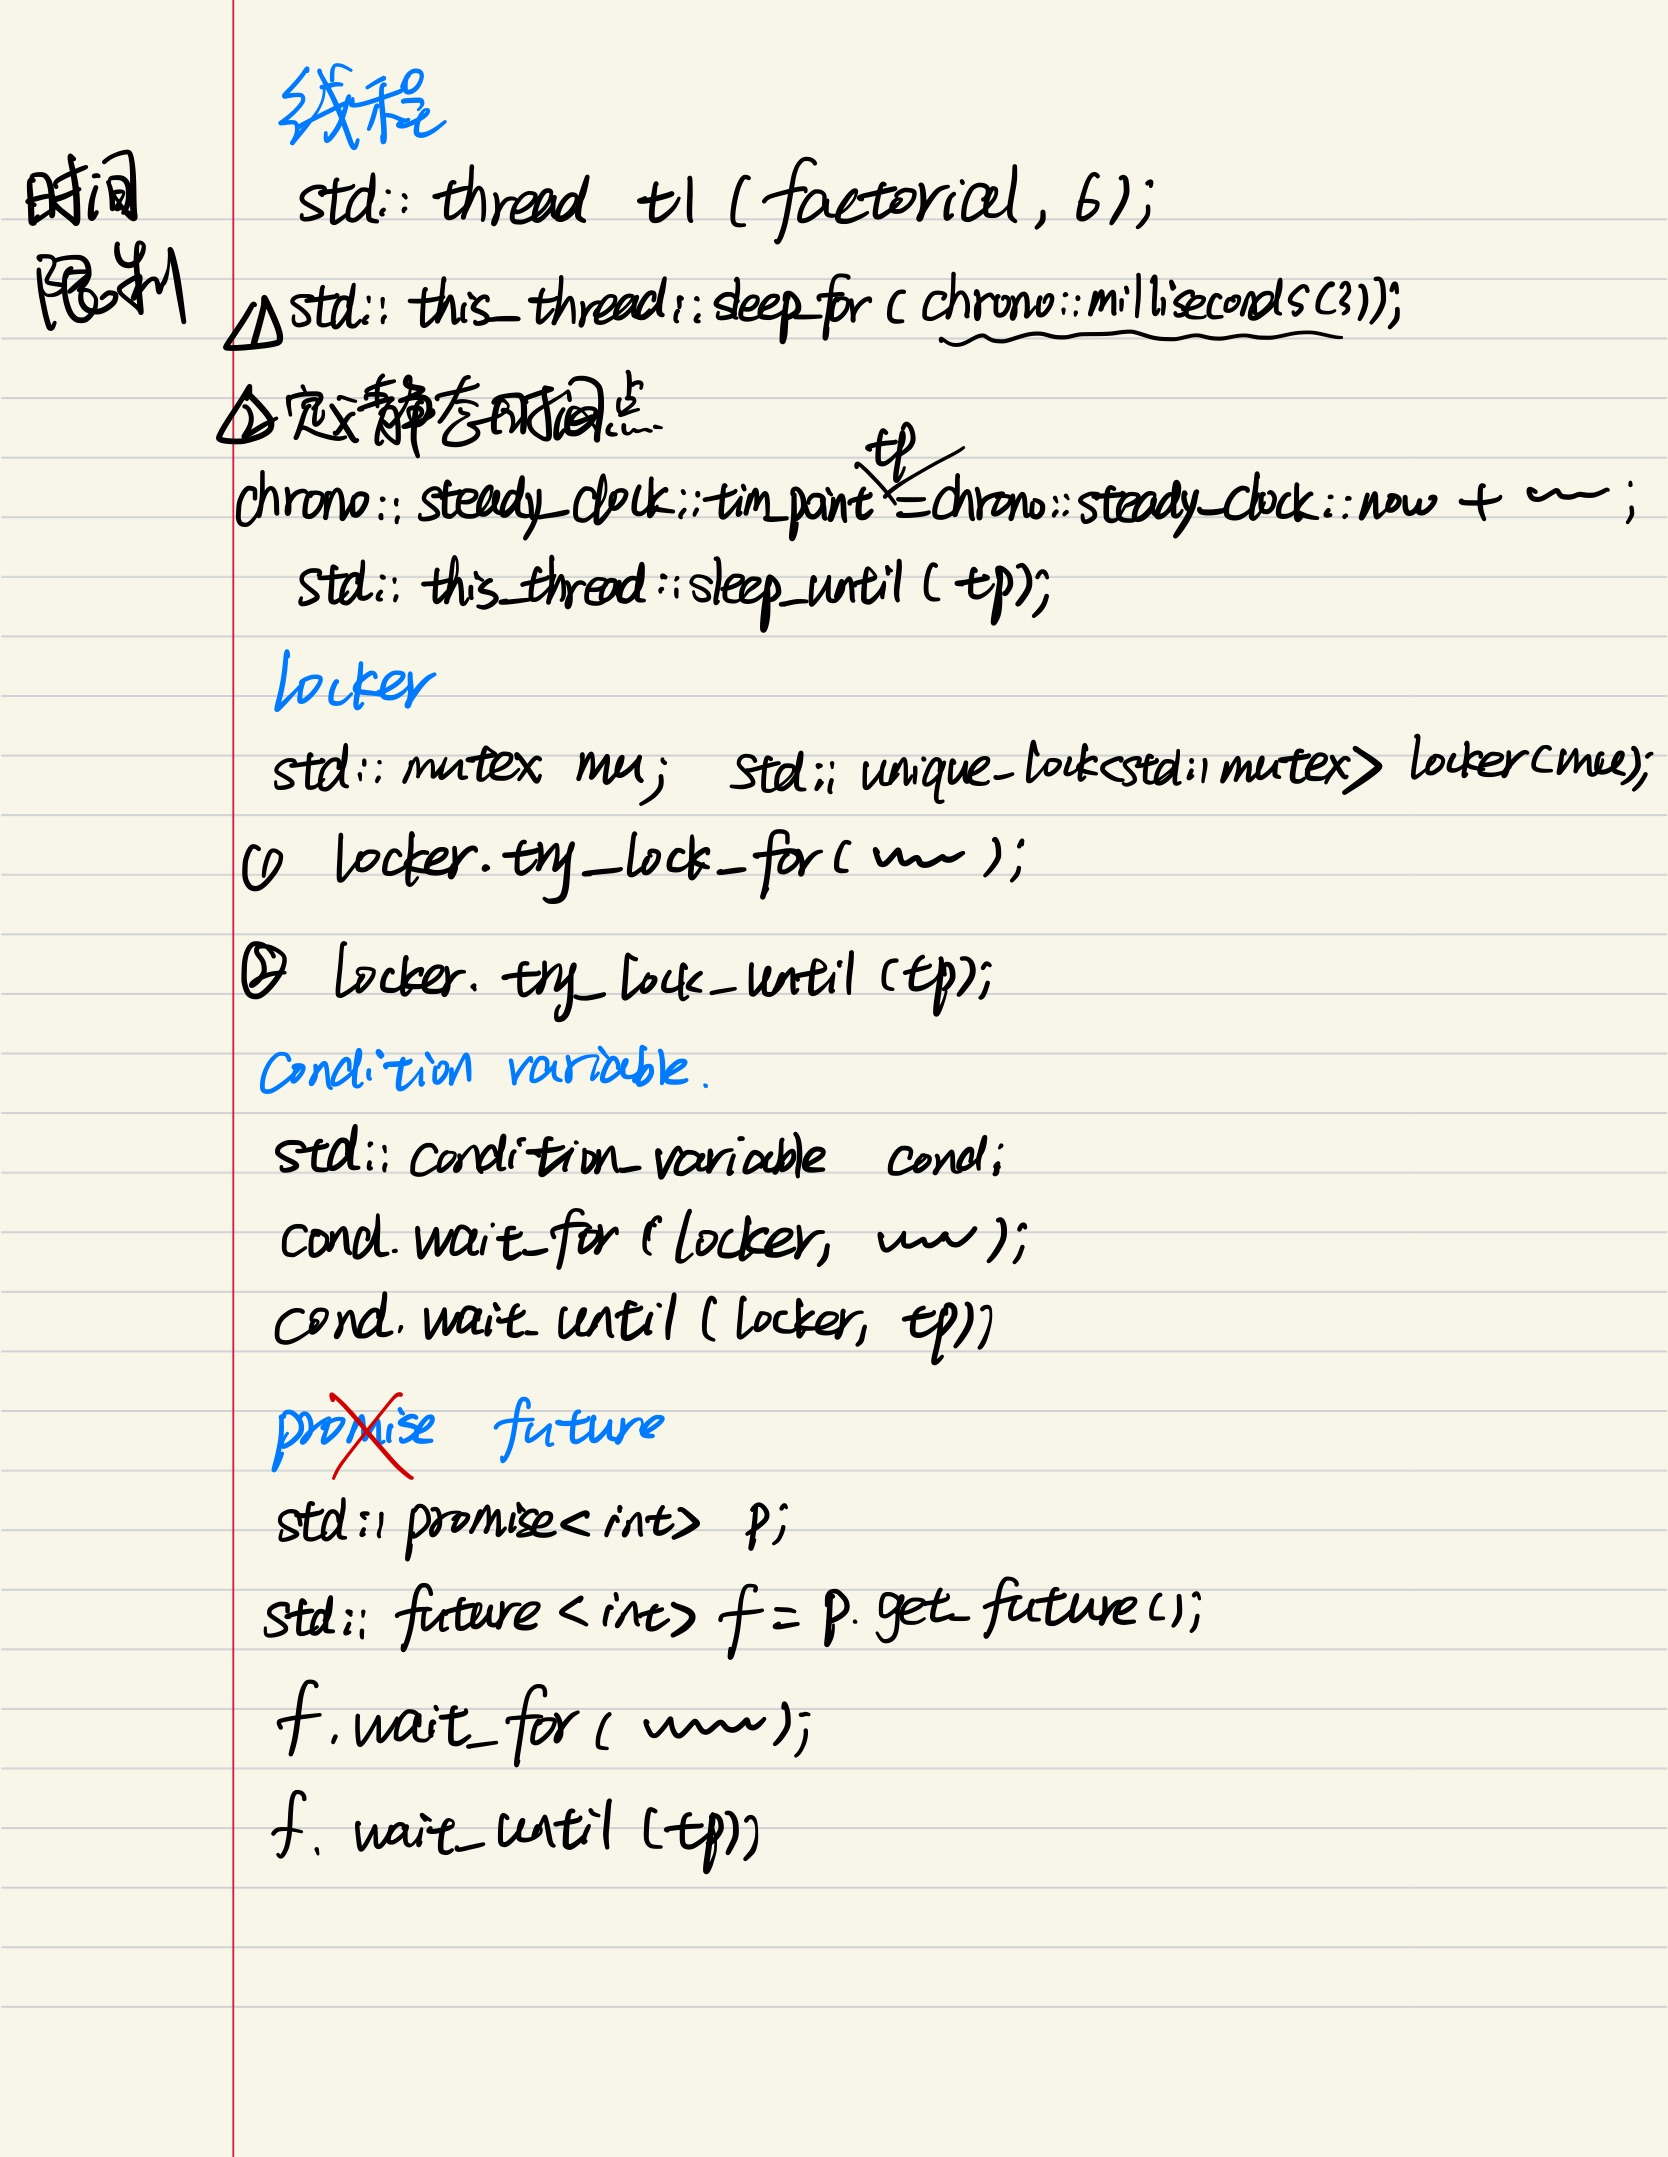 线程
时间
限制
std:: thread t1 (factorial, 6);
① std:: this_thread::sleep_for (chrono::milliseconds(3));
② 定义静态时间点
tp
chrono:: steady_clock::tim_point = chrono::steady_clock::now + ~~ ;
std:: this_thread::sleep_until (tp);
locker
std:: mutex mu; std:: unique_lock<std::mutex> locker(mu);
① locker.try_lock_for( ~~ );
② locker.try_lock_until (tp);
Condition variable.
std:: condition_variable cond;
cond.wait_for (locker, ~~ );
cond.wait_until (locker, tp);
promise future
std:: promise<int> p;
std:: future <int> f = p.get_future();
f.wait_for( ~~ );
f.wait_until (tp);